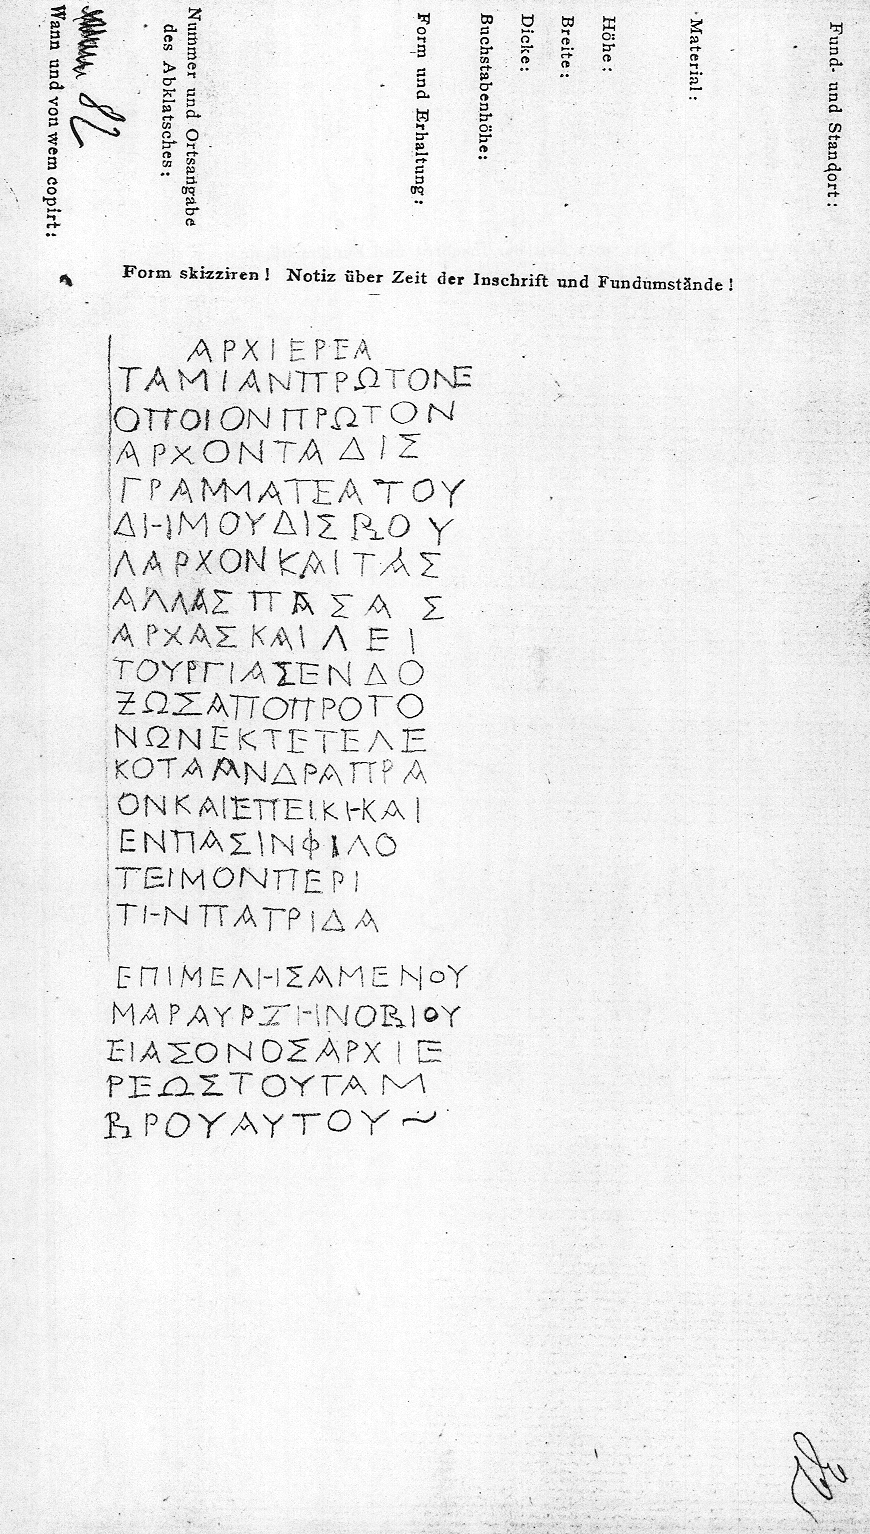 Fund- und Standort:
Material:
Höhe:
Breite:
Dicke:
Buchstabenhöhe:
Form und Erhaltung:
Nummer und Ortsangabe
des Abklatsches:
82
Wann und von wem copirt:
Form skizziren! Notiz über Zeit der Inschrift und Fundumstände!
ΑΡΧΙΕΡΕΑ
ΤΑΜΙΑΝΠΡΩΤΟΝΕ
ΟΠΟΙΟΝΠΡΩΤΟΝ
ΑΡΧΟΝΤΑΔΙΣ
ΓΡΑΜΜΑΤΕΑΤΟΥ
ΔΗΜΟΥΔΙΣΒΟΥ
ΛΑΡΧΟΝΚΑΙΤΑΣ
ΑΛΛΑΣΠΑΣΑΣ
ΑΡΧΑΣΚΑΙΛΕΙ
ΤΟΥΡΓΙΑΣΕΝΔΟ
ΖΩΣΑΠΟΠΡΟΓΟ
ΝΩΝΕΚΤΕΤΕΛΕ
ΚΟΤΑΑΝΔΡΑΠΡΑ
ΟΝΚΑΙΕΠΕΙΚΗΚΑΙ
ΕΝΠΑΣΙΝΦΙΛΟ
ΤΕΙΜΟΝΠΕΡΙ
ΤΗΝΠΑΤΡΙΔΑ
ΕΠΙΜΕΛΗΣΑΜΕΝΟΥ
ΜΑΡΑΥΡΖΗΝΟΒΙΟΥ
ΕΙΑΣΟΝΟΣΑΡΧΙΕ
ΡΕΩΣΤΟΥΓΑΜ
ΒΡΟΥΑΥΤΟΥ~